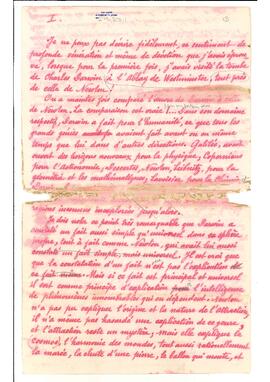 I.
Je ne puis pas décrire fidèlement, ce sentiment de
profonde vénération et même de dévotion que j'avais éprou-
vé, lorsque pour la première fois, j'avais visité la tombe
de Charles Darwin à l'Abbaye de Westminster, tout près
de celle de Newton.
On a maintes fois comparé l'œuvre de Darwin à celle
de Newton. La comparaison est vraie! Dans son domaine
respectif, Darwin a fait pour l'humanité, ce que tous les
grands génies avaient fait avant ou en même
temps que lui dans d'autres directions Galilée, avait
ouvert des horizons nouveaux, pour la physique, Copernicus
pour l'astronomie, Descartes, Newton, Leibnitz, pour la
géométrie et les mathématiques, Lavoisier pour la Chimie
régions inexplorées jusqu'alors.
Je dois noter ce point très remarquable que Darwin a
constaté un fait aussi simple qu'universel dans sa sphère
propre, tout à fait comme Newton, qui avait lui aussi
constaté un fait simple, mais universel. Il est vrai que
que la constatation d'un fait n'est pas l'explication de
ce fait. Mais si ce fait est principal et universel
il est comme principe d'explication l'intelligence
de phénomènes innombrables qui en dépendent. Newton
n'a pas pu expliquer l'origine et la nature de l'attraction,
il n'a même pas hasardé une explication de ce genre,
et l'attraction reste un mystère. Mais elle explique le
cosmos, l'harmonie des mondes, tout aussi rationnellement
la marée, la chute d'une pierre, le ballon qui monte, et